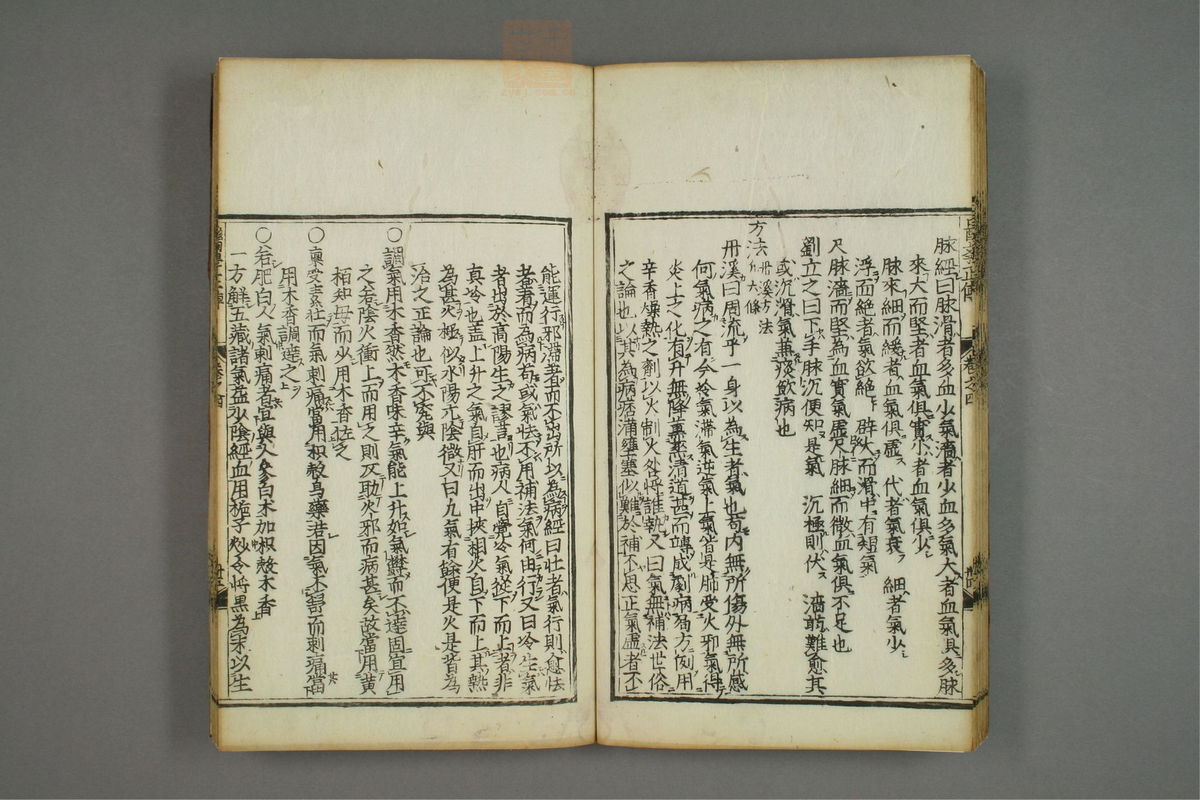 脉經曰脉滑者多血少氣濇者少血多氣大者血氣俱多脉
來大而堅者血氣俱實小者血氣俱少
脉來細而緩者血氣俱虛 代者氣衰 細者氣少
浮而絶者氣欲絶 辟大而滑中有短氣
尺脉濇而堅為血實氣虛尺脉細而微血氣俱不足也
劉立之曰下手脉沉便知是氣 沉極則伏 濇弱難愈其
或沉滑氣兼痰飲病也
方法 丹溪方法 凡六條
丹溪曰周流乎一身以為生者氣也苟内無所傷外無所感
何氣病之有今冷氣滯氣逆氣上氣皆是肺受火邪氣得
炎上之化有升無降薰蒸清道甚而轉成劇病局方例用
辛香燥熱之劑以火制火咎將誰執又曰氣無補法世俗
之論也以其為病痞滿壅塞似難於補不思正氣虛者不
能運行邪滯著而不出所以為病經曰壯者氣行則愈怯
者着而為病有或氣怯不用補法氣何由行又曰冷生氣
者出於高陽生之謬言也病人自覺冷氣從下而上者非
真冷也盖上升之氣自肝而出中挾相火自下而上其熱
為甚火極似水陽亢陰微又曰凡氣有餘便是火是皆為
治之正論也可不究與
○調氣用木香然木香味辛氣能上升如氣鬱而不達固宜用
之若陰火衝上而用之則反助火邪而病甚矣故當用黄
栢知母而少用木香佐之
○稟受素壯而氣刺痛當用枳殻烏藥若因氣不舒而刺痛當
用木香調達之
○若肥白人氣刺痛者宜與人參白术加枳殻木香
一方解五藏諸氣益少陰經血用梔子炒令將黒為末以生
卷之四
卷之四